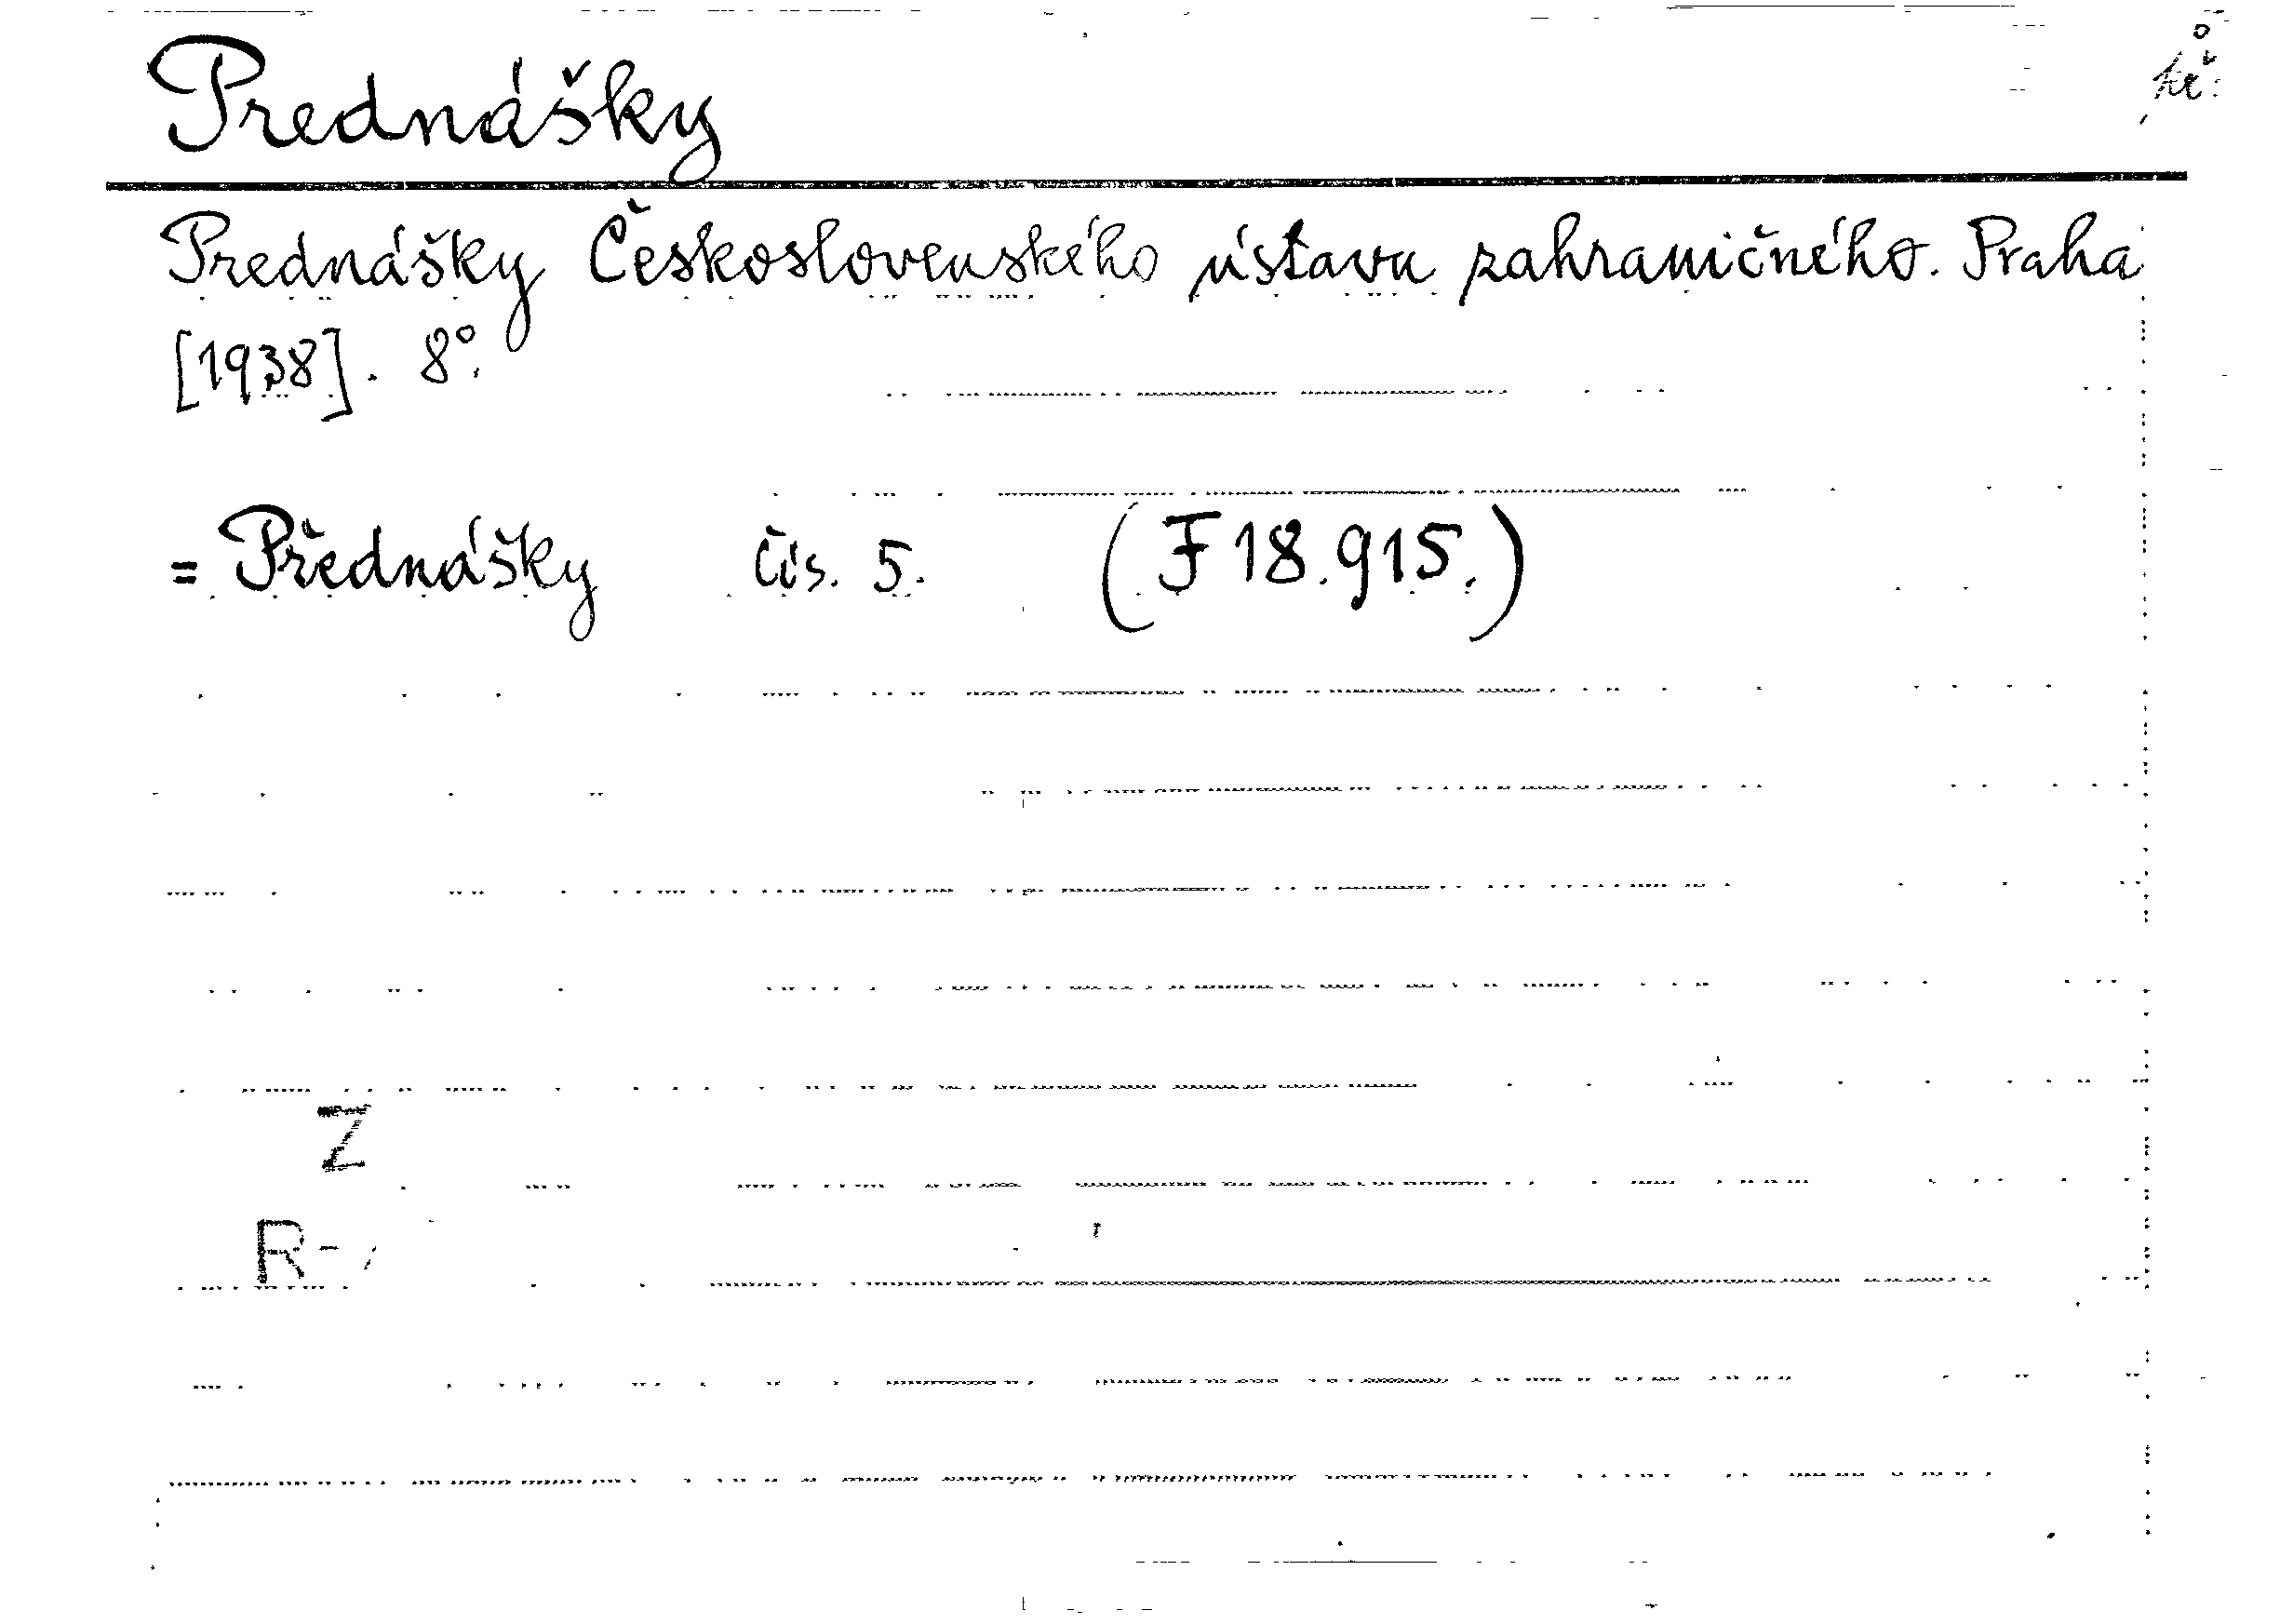 Prednášky
Prednášky Československého ústavu zahraničného. Praha
[1938]. 8°.
= Přednášky čís. 5. (F 18.915.)
Z
R-